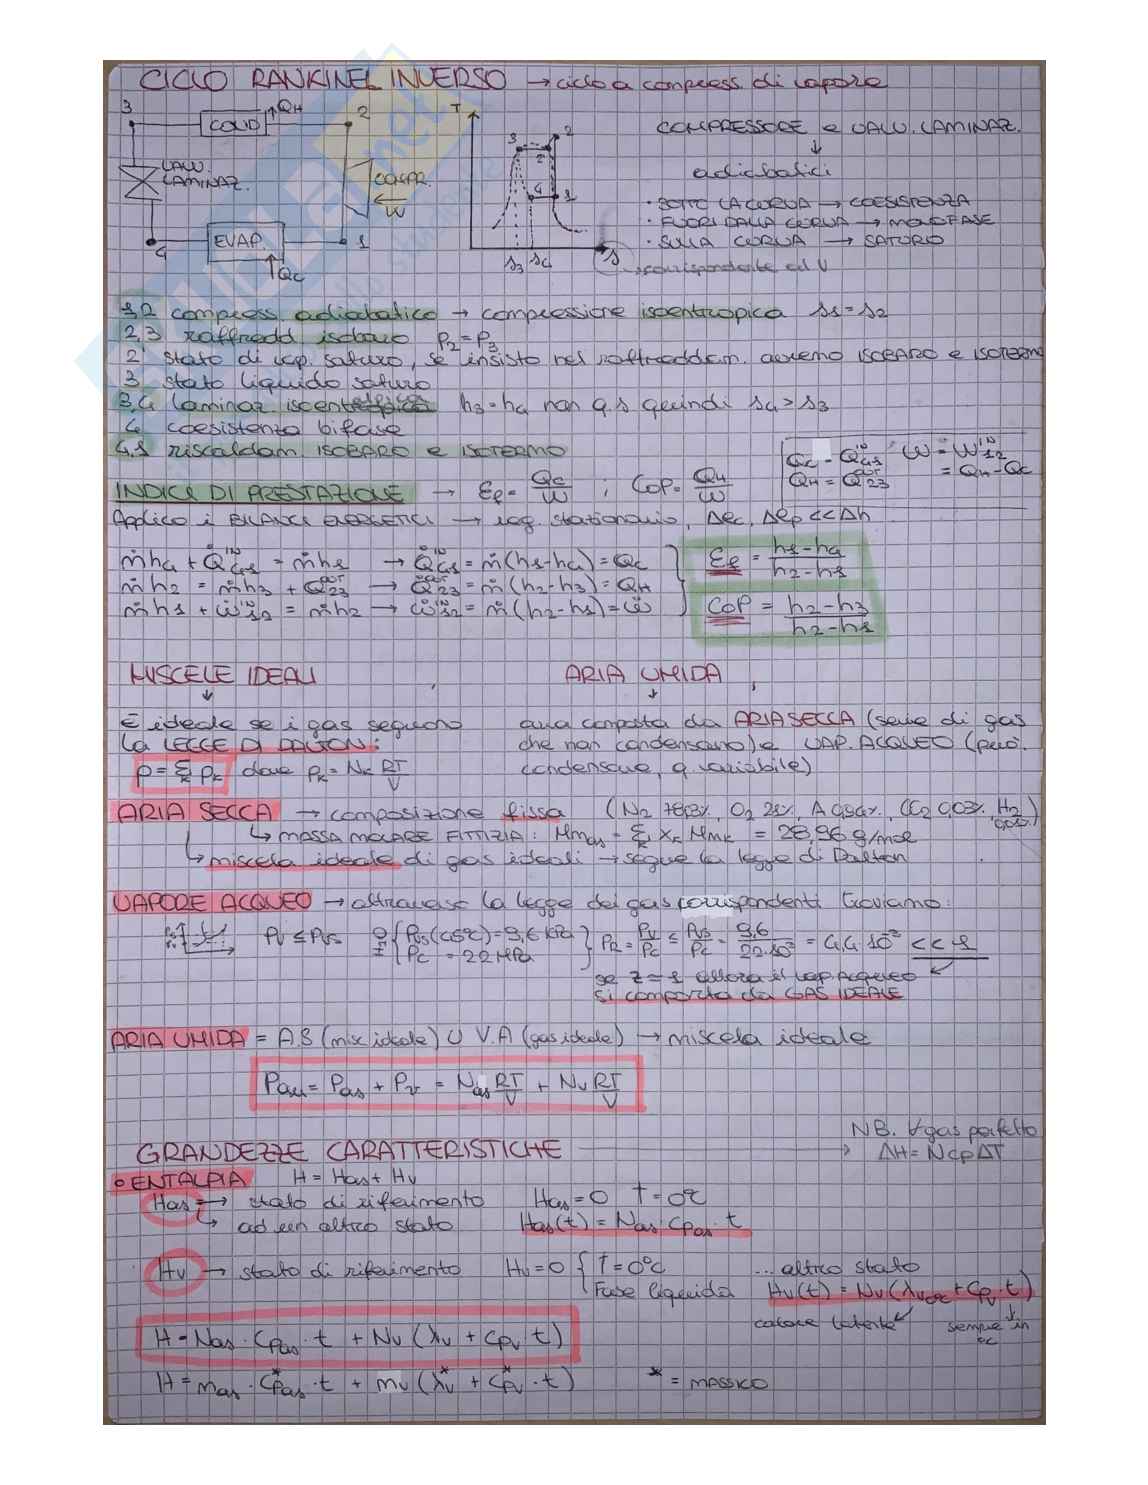 CICLO RANKINEL INVERSO → ciclo a compress. di vapore
3 COND QH 2
VALV. LAMINAZ.
COMPR.
W
4 EVAP. 1
QC
T 3 2 2' 4 1
s3 s4 s
COMPRESSORE e VALV. LAMINAZ.
↓
adiabatici
· SOTTO LA CURVA → COESISTENZA
· FUORI DALLA CURVA → MONOFASE
· SULLA CURVA → SATURO
corrispondente ad V
1,2 compress. adiabatico → compressione isoentropica s1=s2
2,3 raffredd isobaro p2=p3
2' stato di vap. saturo, se insisto nel raffreddam. avremo ISOBARO e ISOTERMO
3 stato liquido saturo
3,4 laminaz. isoent h3=h4 non q.s quindi s4>s3
4 coesistenza bifase
4,1 riscaldam. ISOBARO e ISOTERMO
QC = Q41^IN W = W12^IN
QH = Q23^OUT = QH-QC
INDICI DI PRESTAZIONE → εf= QC/W ; COP= QH/W
Applico i BILANCI ENERGETICI → reg. stazionario, Δec, Δep <<Δh
ṁh4 + Q̇41^IN = ṁh1 → Q̇41^IN = ṁ(h1-h4)=QC
ṁh2 = ṁh3 + Q̇23^OUT → Q̇23^OUT = ṁ(h2-h3)=QH
ṁh1 + Ẇ12^IN = ṁh2 → Ẇ12^IN = ṁ(h2-h1)=Ẇ
εf = h1-h4 / h2-h1
COP = h2-h3 / h2-h1
MISCELE IDEALI
↓
È ideale se i gas seguono
la LEGGE DI DALTON:
p = Σk pk dove pk = Nk RT/V
ARIA UMIDA
↓
aria composta da ARIA SECCA (serie di gas
che non condensano) e VAP. ACQUEO (può
condensare, q variabile)
ARIA SECCA → composizione fissa (N2 78,3%, O2 21%, A 0,94%, CO2 0,03%, H2 0,01%)
↳ MASSA MOLARE FITTIZIA: Mmas = Σk xk Mmk = 28,96 g/mol
↳ miscela ideale di gas ideali → segue la legge di Dalton
VAPORE ACQUEO → attraverso la legge dei gas corrispondenti troviamo:
Pv ≤ Pvs { Pvs(45°C) = 9,6 kPa
Pc = 22 MPa } PR = Pv/Pc ≤ Pvs/Pc = 9,6/22·10³ = 4,4·10⁻³ << 1
se z=1 allora il vap. acqueo
si comporta da GAS IDEALE
ARIA UMIDA = A.S (misc ideale) U V.A (gas ideale) → miscela ideale
Pau = Pas + Pv = Nas RT/V + Nv RT/V
GRANDEZZE CARATTERISTICHE → NB. ∀gas perfetto
ΔH = NcpΔT
° ENTALPIA H = Has + Hv
Has → stato di riferimento Has=0 T=0°C
↳ ad un altro stato Has(t) = Nas · cpas · t
Hv → stato di riferimento Hv=0 { T=0°C
Fase liquida
... altro stato
Hv(t) = Nv(λv0°C + cpv · t)
calore latente sempre in °C
H = Nas · cpas · t + Nv (λv + cpv t)
H = mas · c*pas · t + mv (λ*v + c*pv · t) * = MASSICO